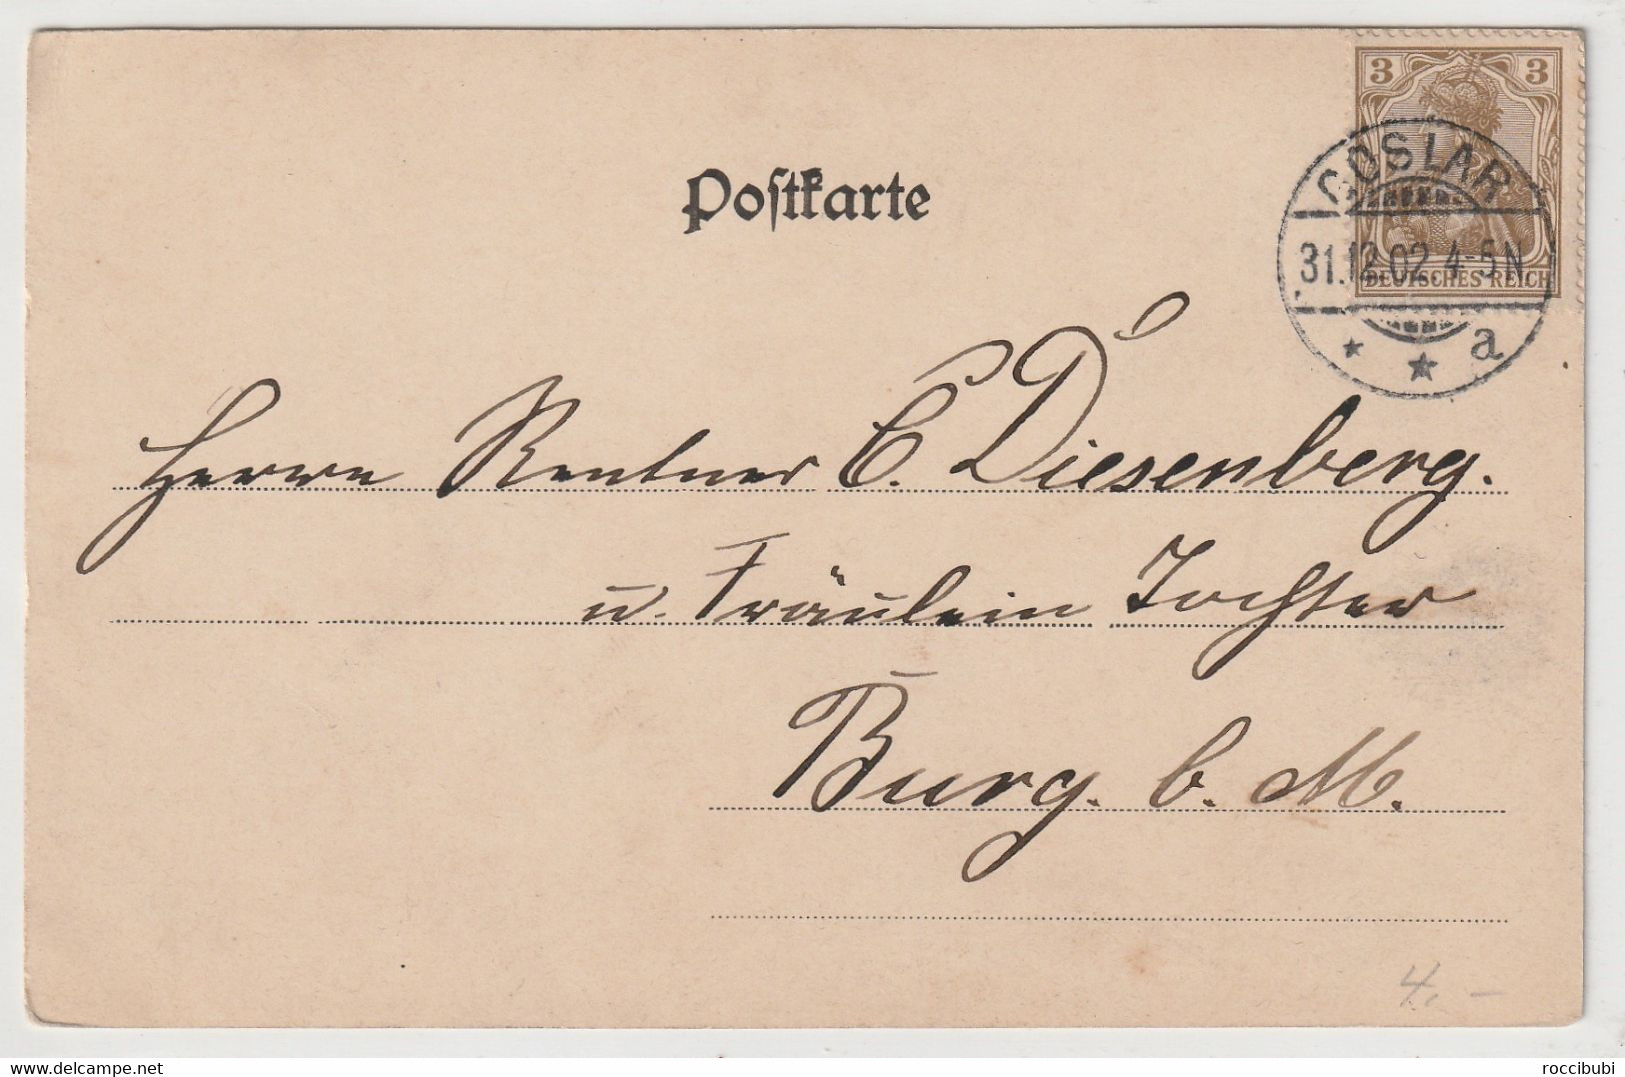 3 3
GOSLAR
31.12.02. 4-5N
DEUTSCHES REICH
* * a
Postkarte
Herrn Rentner C. Diesenberg.
u. Fräulein Tochter
Burg. b. M.
4.-
www.delcampe.net
roccibubi